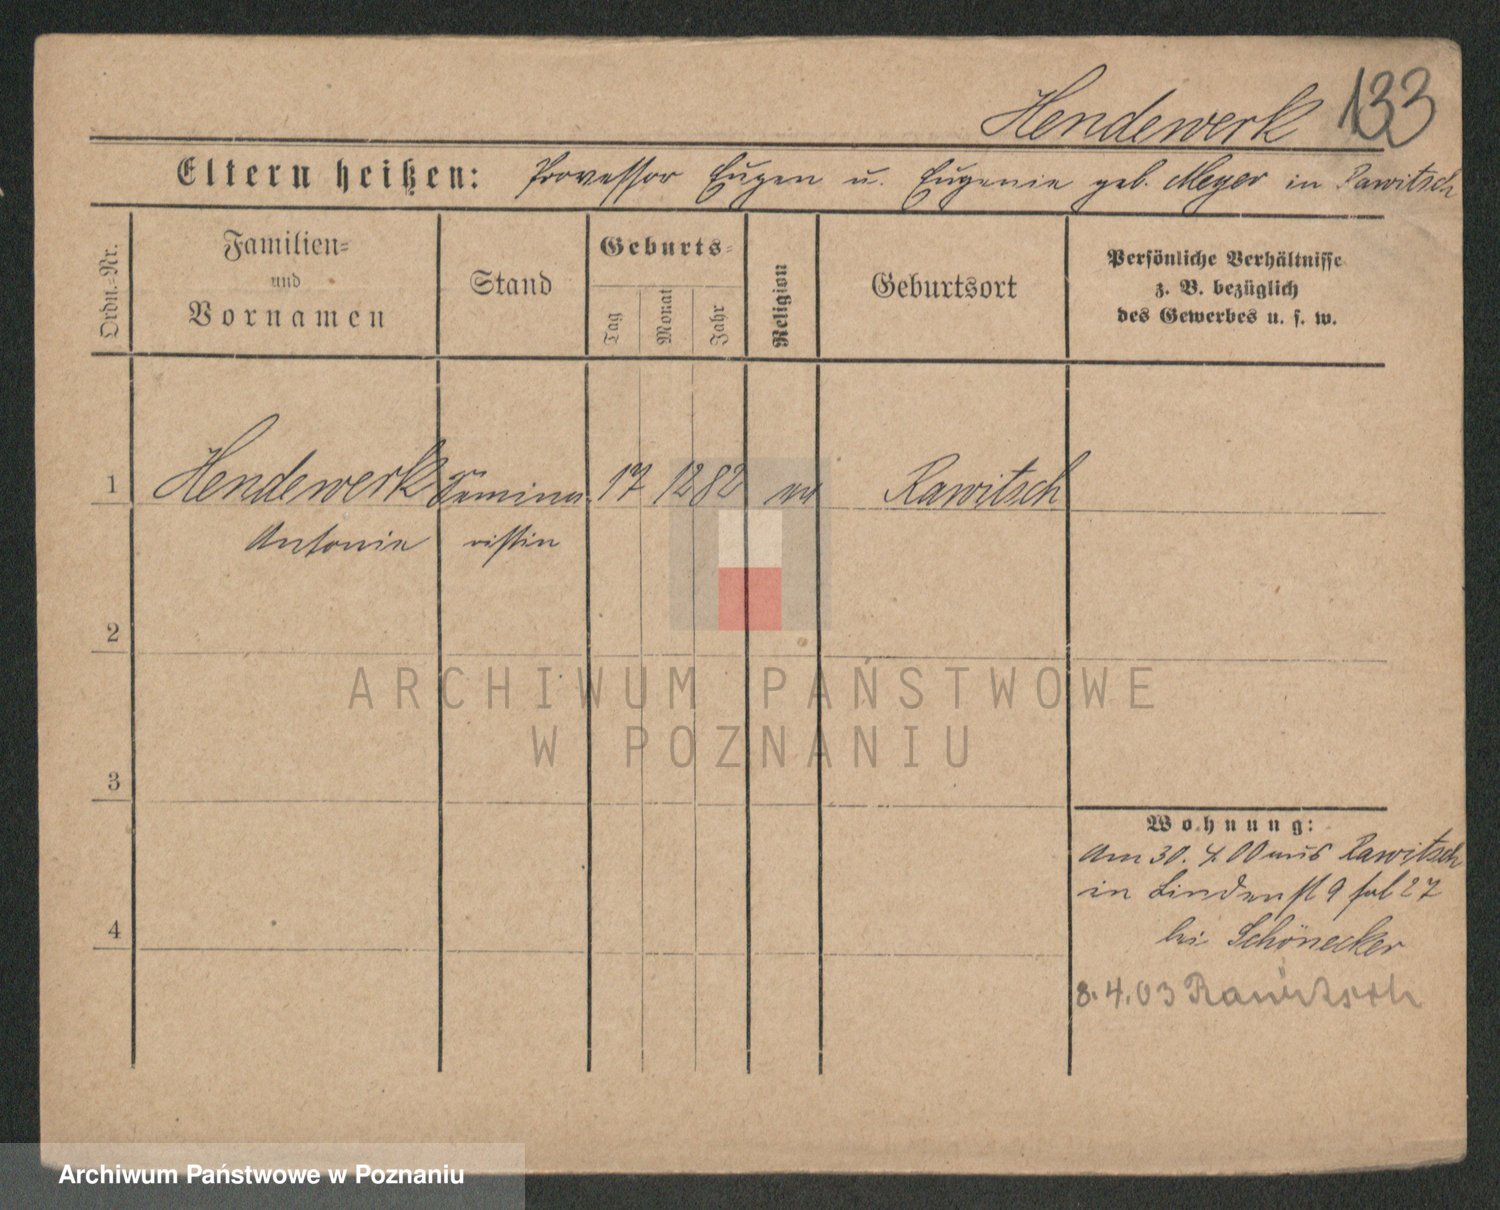 Hendewerk 133
Eltern heißen: Provessor Eugen u. Eugenie geb. Meyer in Rawitsch
Ordn.-Nr.
Familien-
und
Vornamen
Stand
Geburts-
Tag
Monat
Jahr
Religion
Geburtsort
Persönliche Verhältnisse
z. B. bezüglich
des Gewerbes u. s. w.
1 Hendewerk Semina 17 12 82 ev Rawitsch
Antonie ristin
2
3
4
Wohnung:
Am 30. 4 00 aus Rawitsch
in Lindenst 9 27
bei Schönecker
8.4.03 Rawitsch
ARCHIWUM PAŃSTWOWE
W POZNANIU
Archiwum Państwowe w Poznaniu